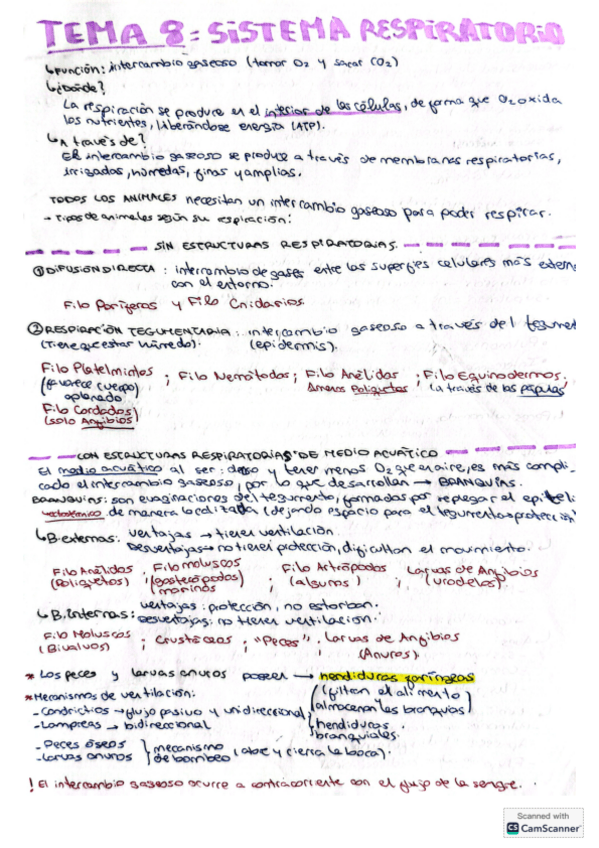 TEMA 8: SISTEMA RESPIRATORIO
↳FUNCIÓN: Intercambio gaseoso (tomar O2 y sacar CO2)
↳¿Dónde?
La respiración se produce en el interior de las células, de forma que O2 oxida
los nutrientes, liberándose energía (ATP).
↳A través de?
El intercambio gaseoso se produce a través de membranas respiratorias,
irrigadas, húmedas, finas y amplias.
TODOS LOS ANIMALES necesitan un intercambio gaseoso para poder respirar.
→ Tipos de animales según su respiración:
SIN ESTRUCTURAS RESPIRATORIAS
① DIFUSIÓN DIRECTA: intercambio de gases entre las superfies celulares más extern
con el entorno.
Filo Poríferos y Filo Cnidarios.
② RESPIRACIÓN TEGUMENTARIA: intercambio gaseoso a través del tegumet
(Tiene que estar húmedo). (epidermis).
Filo Platelmintos ; Filo Nemátodos; Filo Anélidos ; Filo Equinodermos.
(favorece cuerpo) Poliquetos (a través de las pápulas
aplanado
Filo Cordados
(solo Anfibios)
CON ESTRUCTURAS RESPIRATORIAS DE MEDIO ACUÁTICO
El medio acuático al ser denso y tener menos O2 que aire, es más compli-
cado el intercambio gaseoso, por lo que desarrollan → BRANQUIAS.
BRANQUIAS: son evaginaciones del tegumento, formadas por replegar el epiteli
de manera localizada (dejando espacio para el tegumento→protección)
↳B.externas: ventajas → tienen ventilación.
Desventajas→ no tienen protección, dificultan el movimiento.
Filo Anélidos , Filo moluscos ; Filo Artrópodos Larvas de Anfibios
(Poliquetos) (gasterópodos) (algunos) ; (urodelos).
marinos
↳B.internas: ventajas: protección, no estorban.
Desventajas: no tienen ventilación.
Filo Moluscos ; Crustáceos , "Peces". Larvas de Anfibios
(Bivalvos) (Anuros)
* Los peces y larvas anuros poseen → hendiduras faríngeas
(filtran el alimento)
* Mecanismos de ventilación: almacenan las branquias)
- Condrictios → flujo pasivo y unidireccional
- Lampreas → bidireccional (hendiduras
branquiales.
- Peces óseos } mecanismo (abre y cierra la boca).
- Larvas anuros de bombeo
! El intercambio gaseoso ocurre a contracorriente con el flujo de la sangre.
Scanned with
CS CamScanner